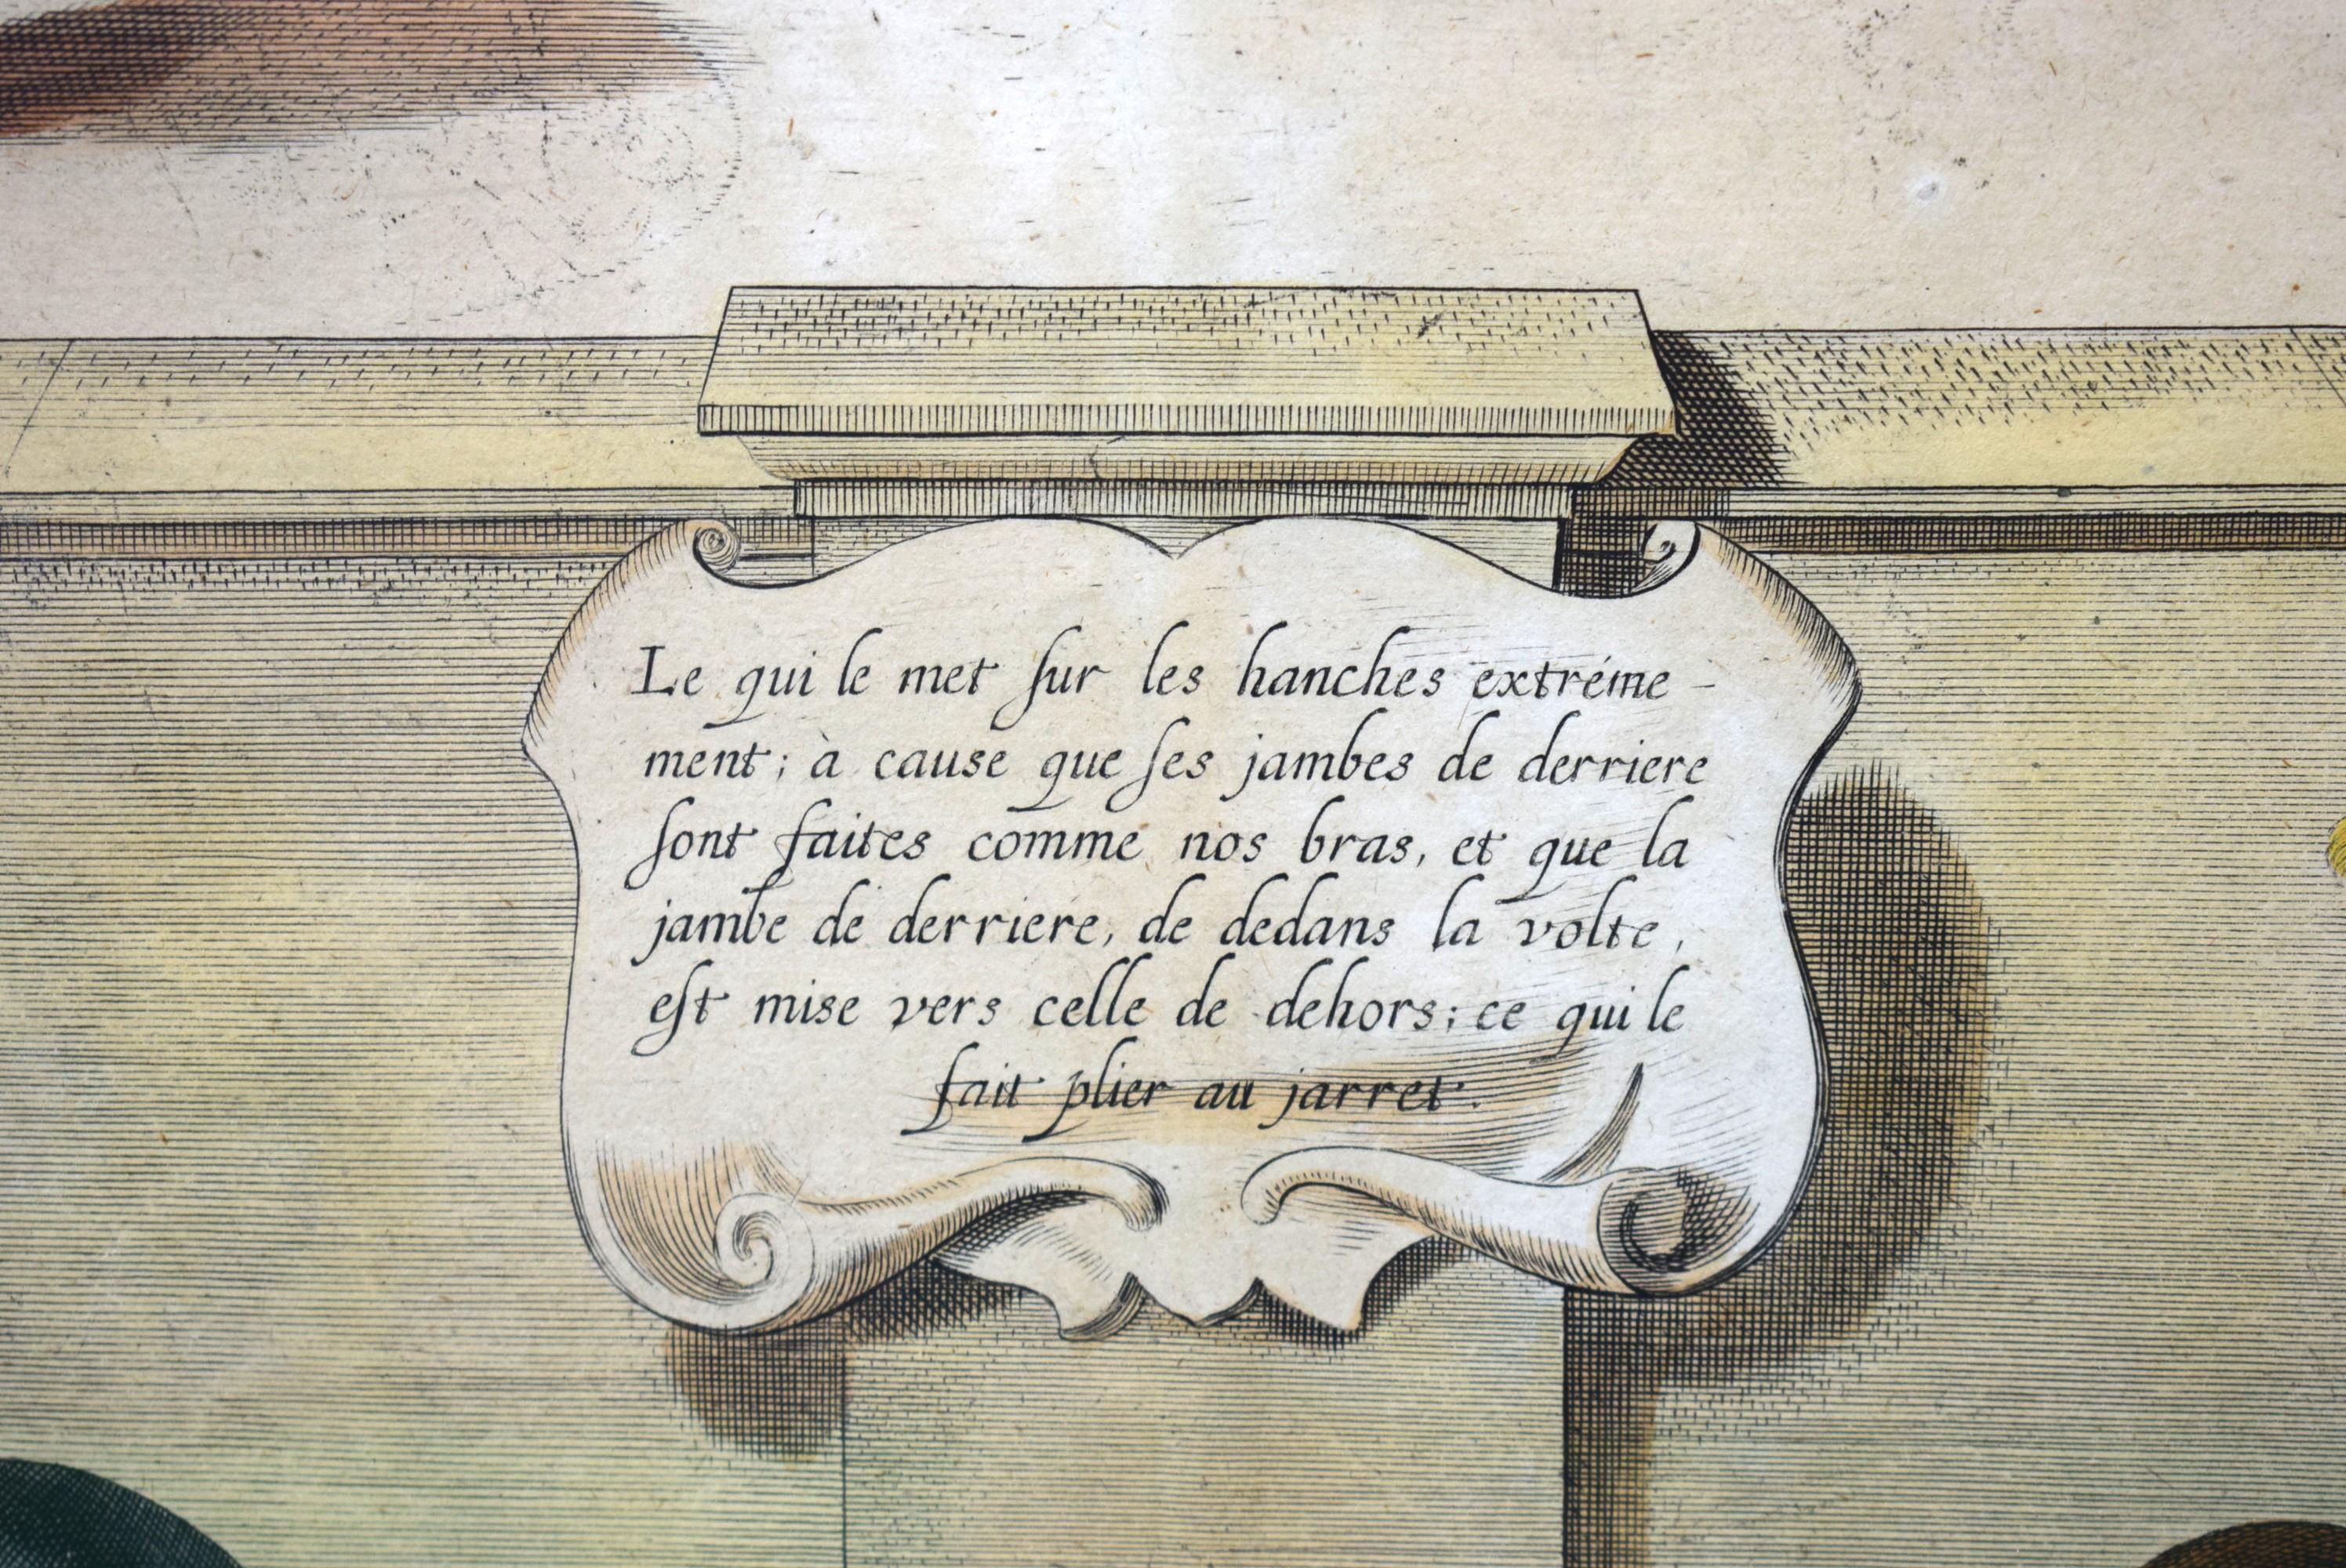 Le qui le met ſur les hanches extréme-
ment; à cause que ſes jambes de derriere
ſont faites comme nos bras, et que la
jambe de derriere, de dedans la volte,
eſt mise vers celle de dehors; ce qui le
fait plier au jarret.